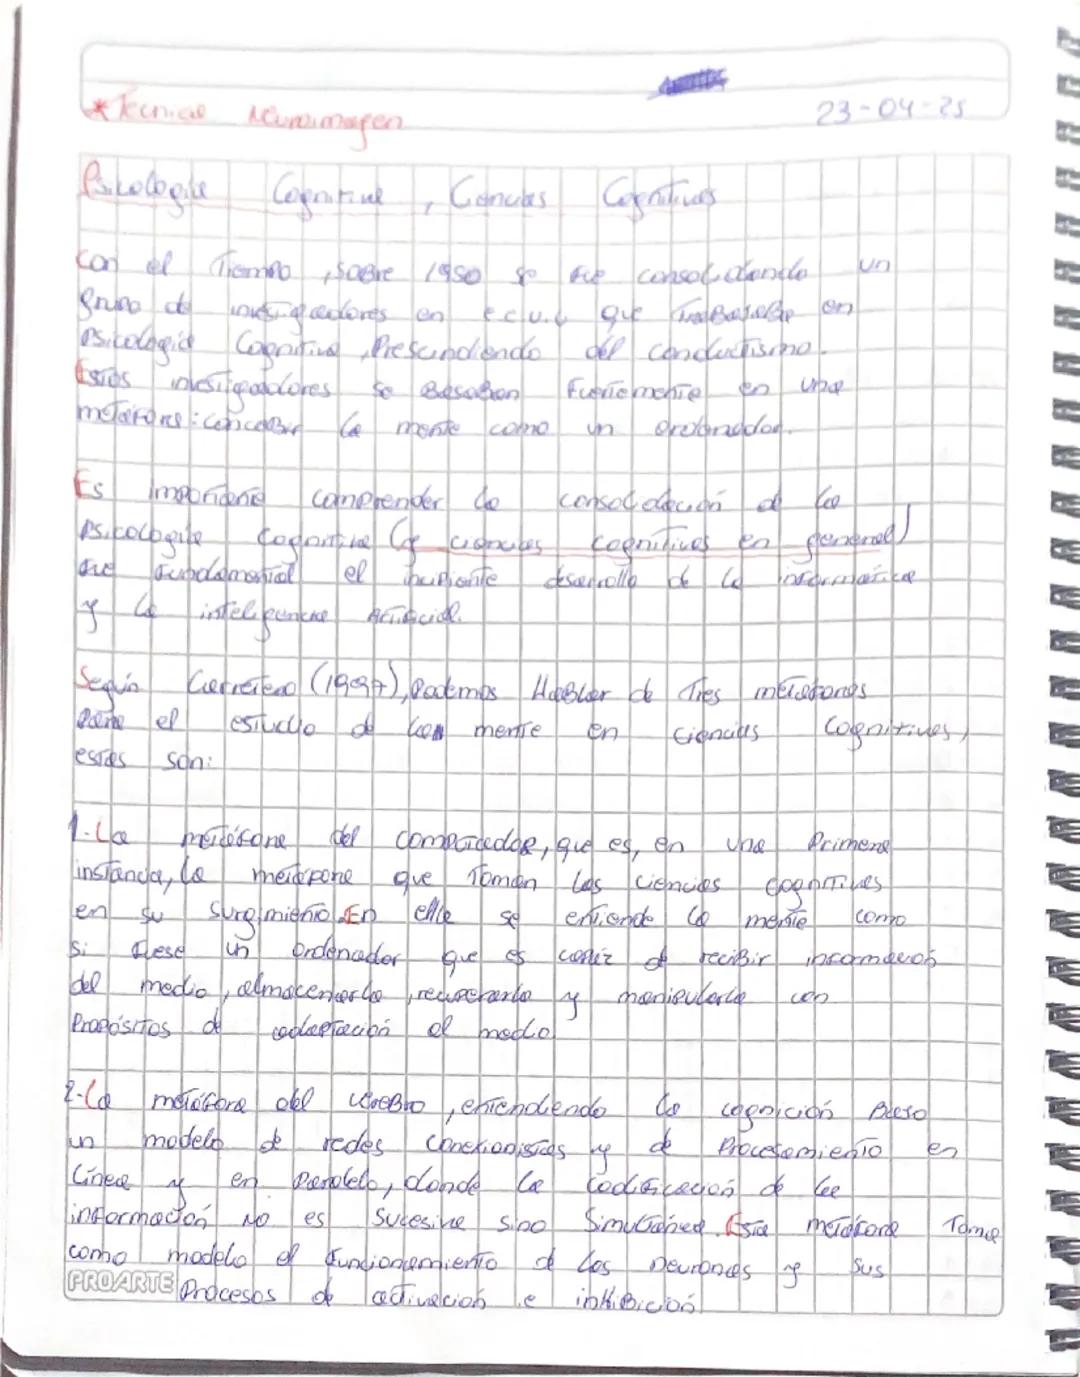 * Tecnicas Neuroimagen
23-04-25
Psicologia Cognitiva, Ciencias Cognitivas
Con el Tiempo, sobre 1950 se fue consolidando un
grupo de investigadores en ee.uu. que Trabajaba en
Psicologia Cognitiva, Prescindiendo del conductismo.
Estos investigadores se Basaban Fuertemente en una
metafora: concebir la mente como un ordenador.
Es importante comprender la consolidación de la
Psicologia Cognitiva (y ciencias cognitivas en general)
fue fundamental el incipiente desarrollo de la informatica
y la inteligencia Artificial.
Según Carretero (1997), Podemos Hablar de Tres metaforas
para el estudio de la mente en ciencias Cognitivas,
estas son:
1.-La metáfora del computador, que es, en una Primera
instancia, la metafora que Toman las ciencias cognitivas
en su surgimiento. En ella se entiende la mente como
si fuese un ordenador que es capaz de recibir informacion
del medio, almacenarla, recuperarla y manipularla con
Propósitos de adaptación al medio.
2.-La metáfora del cerebro, entendiendo la cognición Bajo
un modelo de redes conexionistas y de Procesamiento en
Linea y en Paralelo, donde la codificación de la
información no es sucesiva sino simultánea. Esta metáfora Toma
como modelo el funcionamiento de las neuronas y sus
Procesos de activación e inhibición.
PROARTE